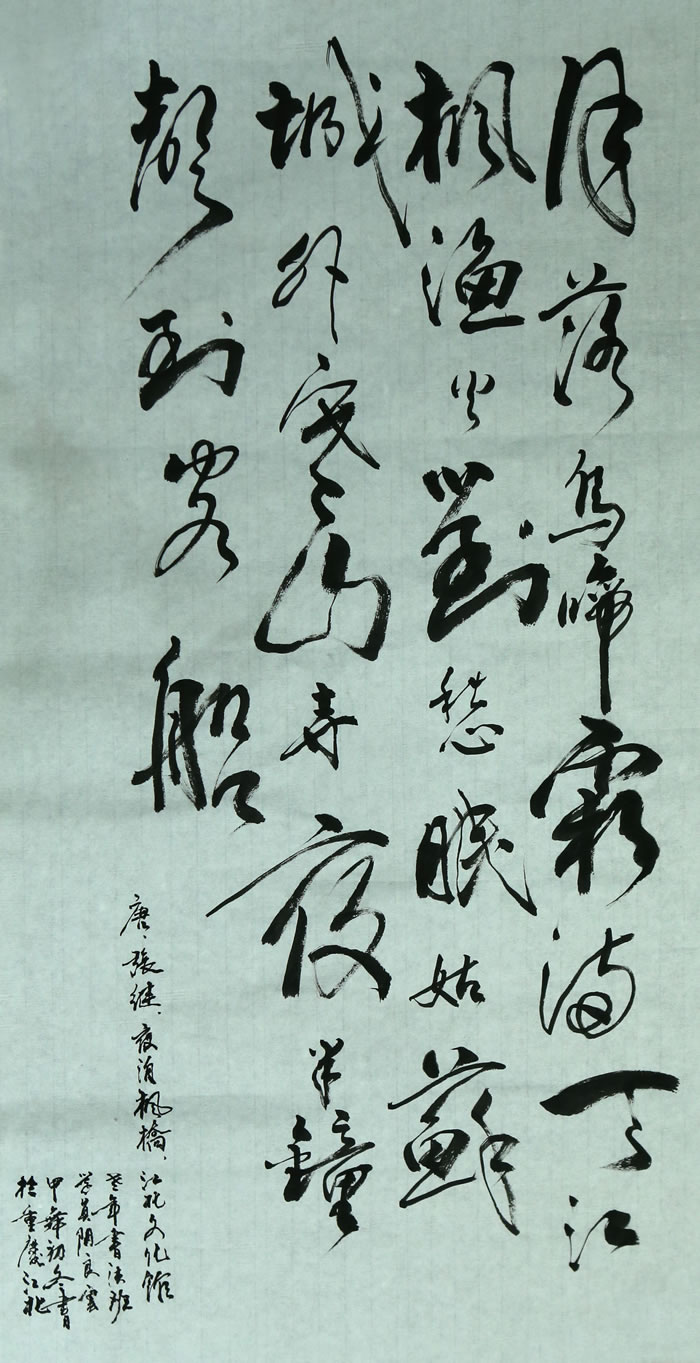 月落烏啼霜滿天江
枫渔火對愁眠姑蘇
城外寒山寺夜半鐘
聲到客船
唐、張继、夜泊枫橋、
江北文化館
老年書法班
学員阴良雲
甲午初冬書
於重慶江北